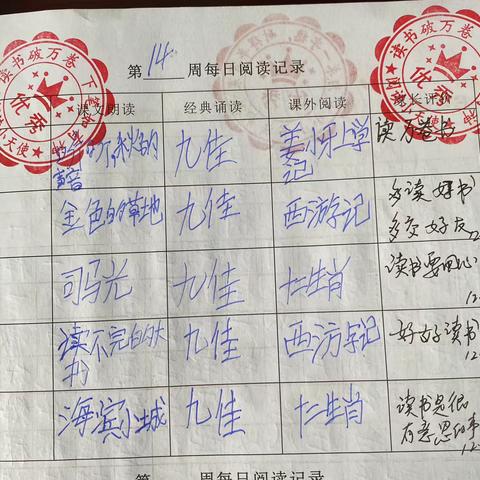 第14周每日阅读记录
课文朗读 经典诵读 课外阅读 家长评价
听听,秋的声音 九佳 姜小牙上学记 读万卷书
金色的草地 九佳 西游记 多读好书 多交好友
司马光 九佳 十二生肖 读书要用心
读不完的大书 九佳 西游记 好好读书
海滨小城 九佳 十二生肖 读书是很有意思的事
读书破万卷
优秀
小天使
读书破万卷
优秀
周每日阅读记录